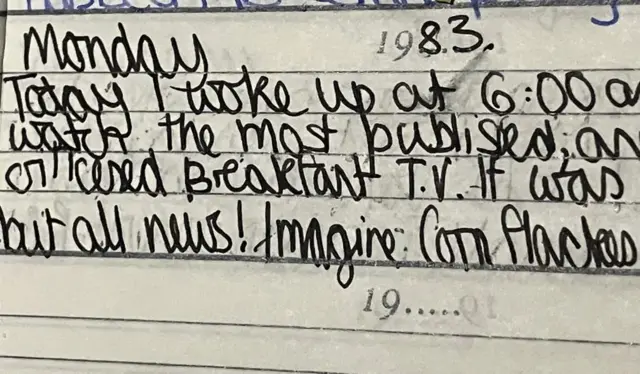 Monday 1983.
Today I woke up at 6:00 a
watch the most publised, an
cricised Breakfant T.V. It was
but all news! Imagine: Corn flackes
19.....